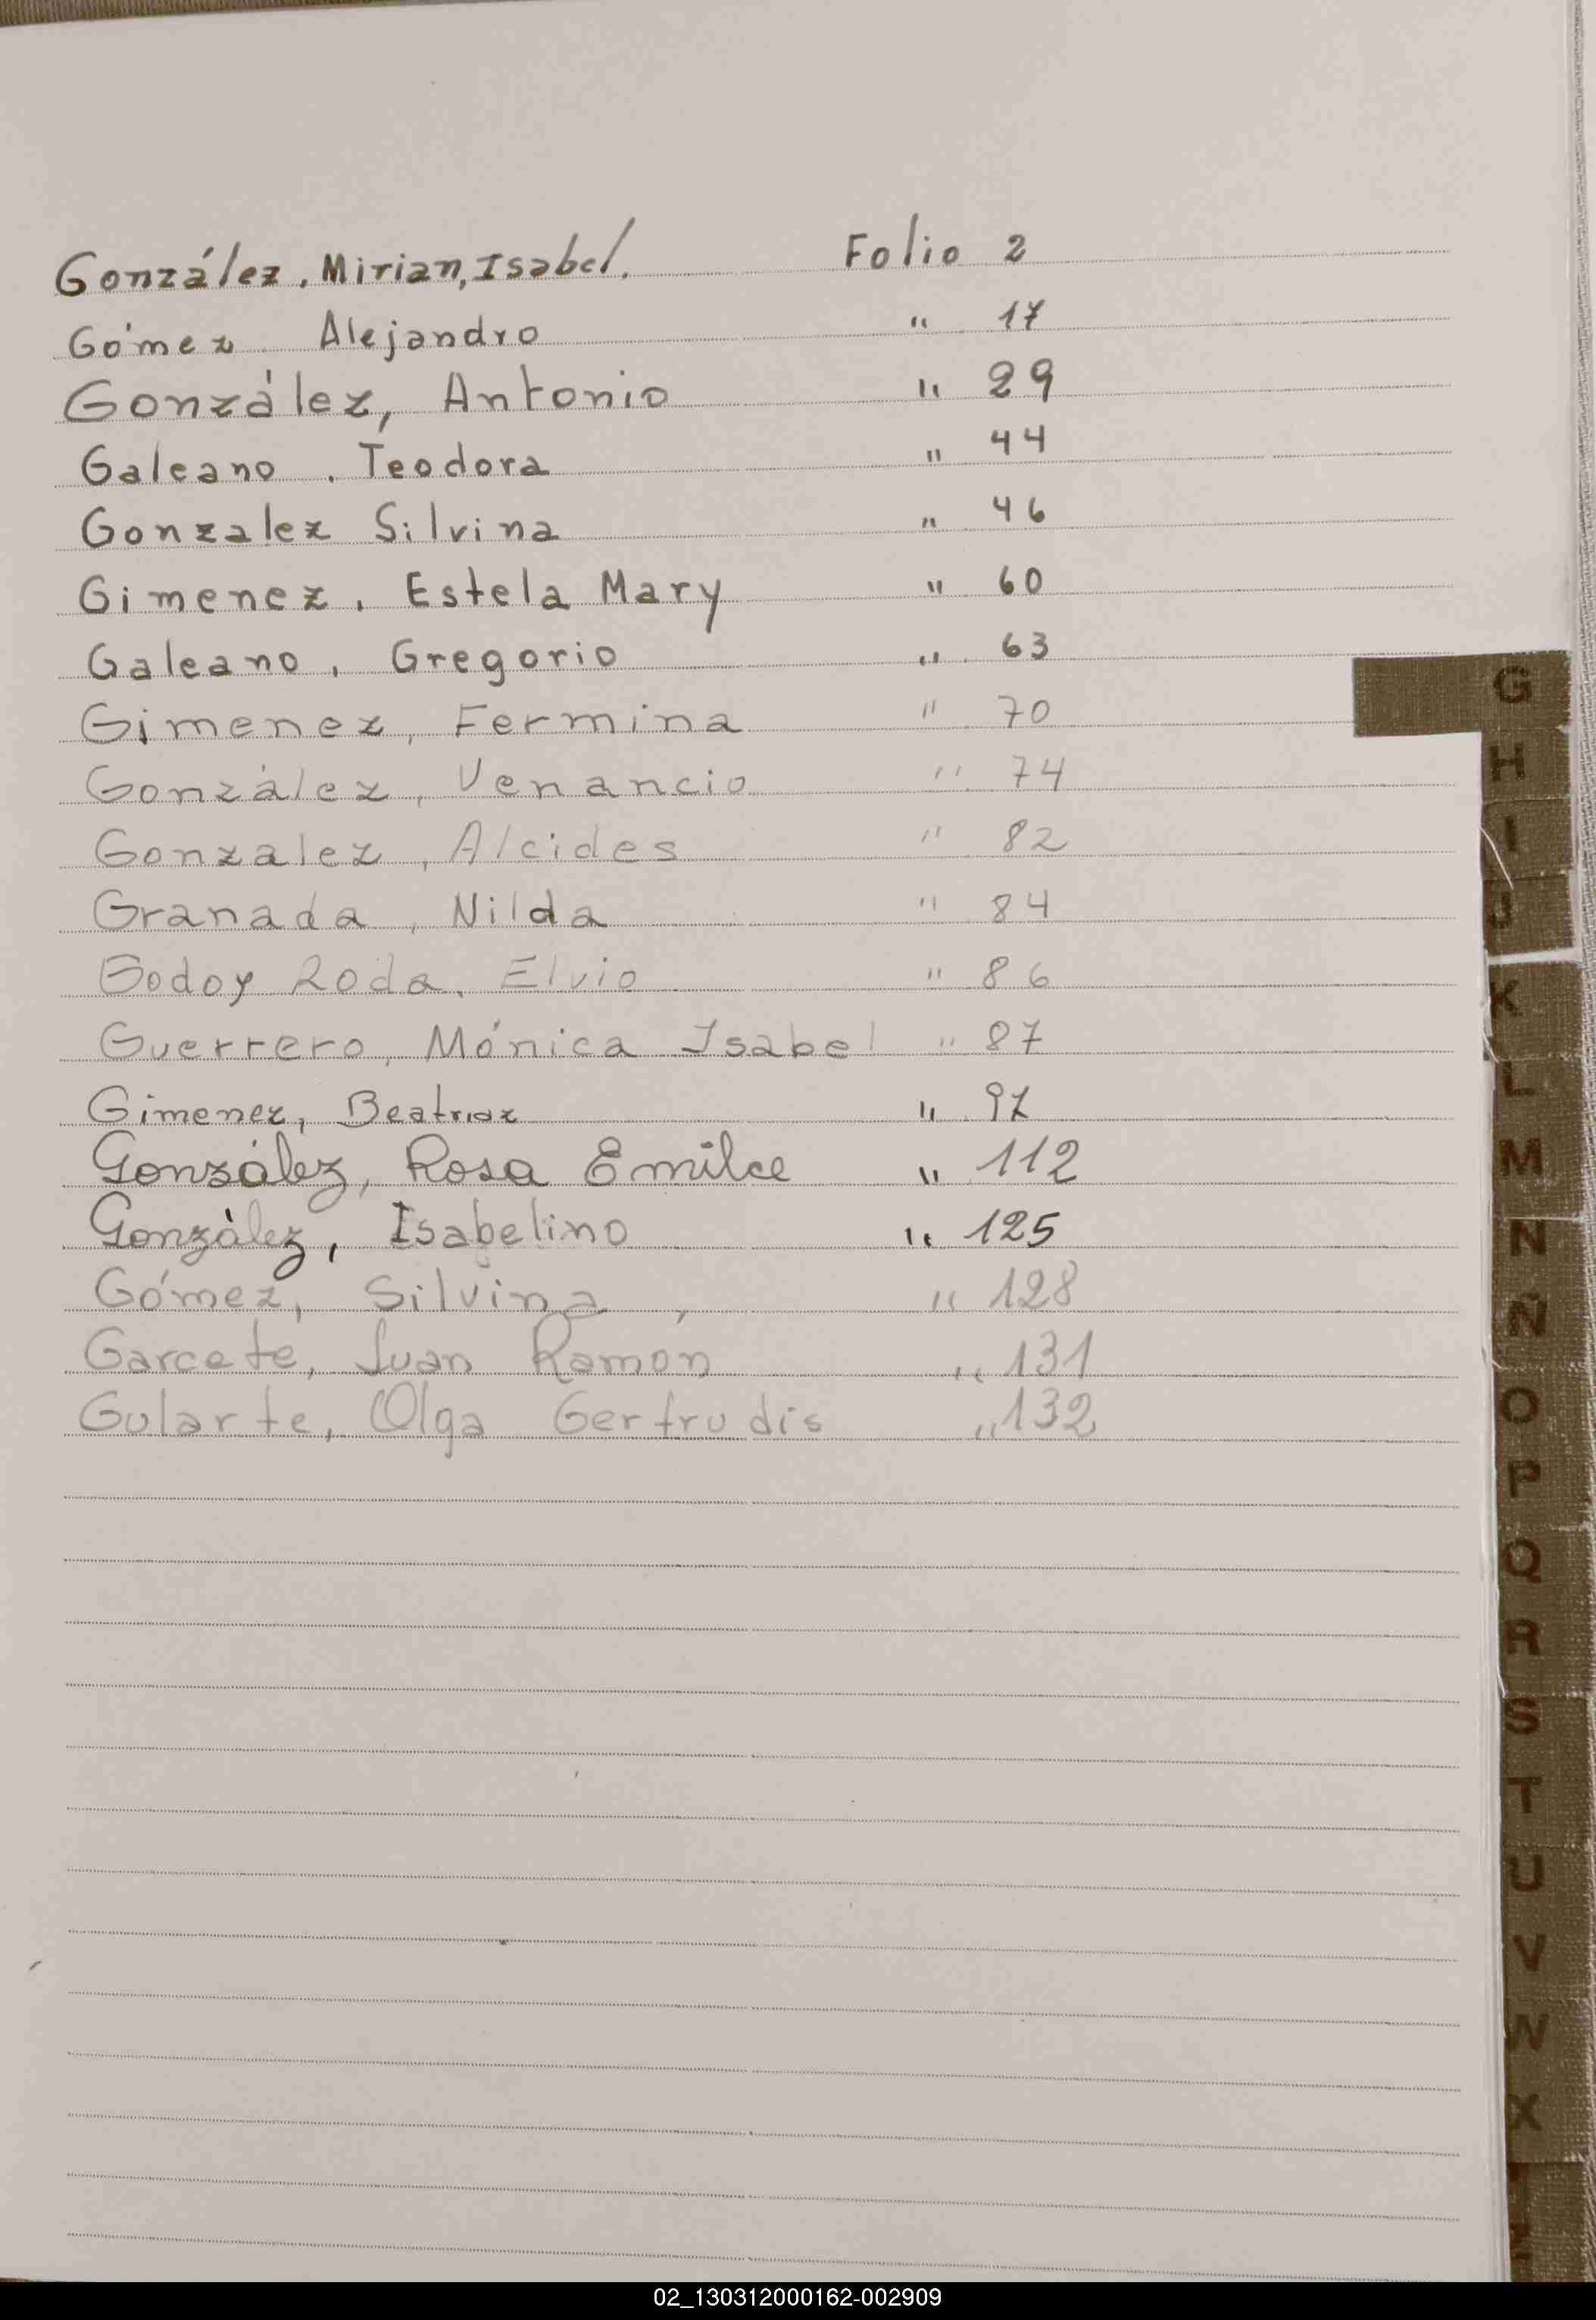 González, Mirian, Isabel. Folio 2
Gómez Alejandro " 17
González, Antonio " 29
Galeano, Teodora " 44
Gonzalez Silvina " 46
Gimenez, Estela Mary " 60
Galeano, Gregorio " 63
Gimenez, Fermina " 70
González, Venancio " 74
Gonzalez, Alcides " 82
Granada, Nilda " 84
Godoy Roda, Elvio " 86
Guerrero, Mónica Isabel " 87
Gimenez, Beatriaz " 97
González, Rosa Emilce " 112
González, Isabelino " 125
Gómez, Silvina, " 128
Garcete, Juan Ramón " 131
Gularte, Olga Gertrudis " 132
G
H
I
J
K
L
M
N
Ñ
O
P
Q
R
S
T
U
V
W
X
Z
02_130312000162-002909